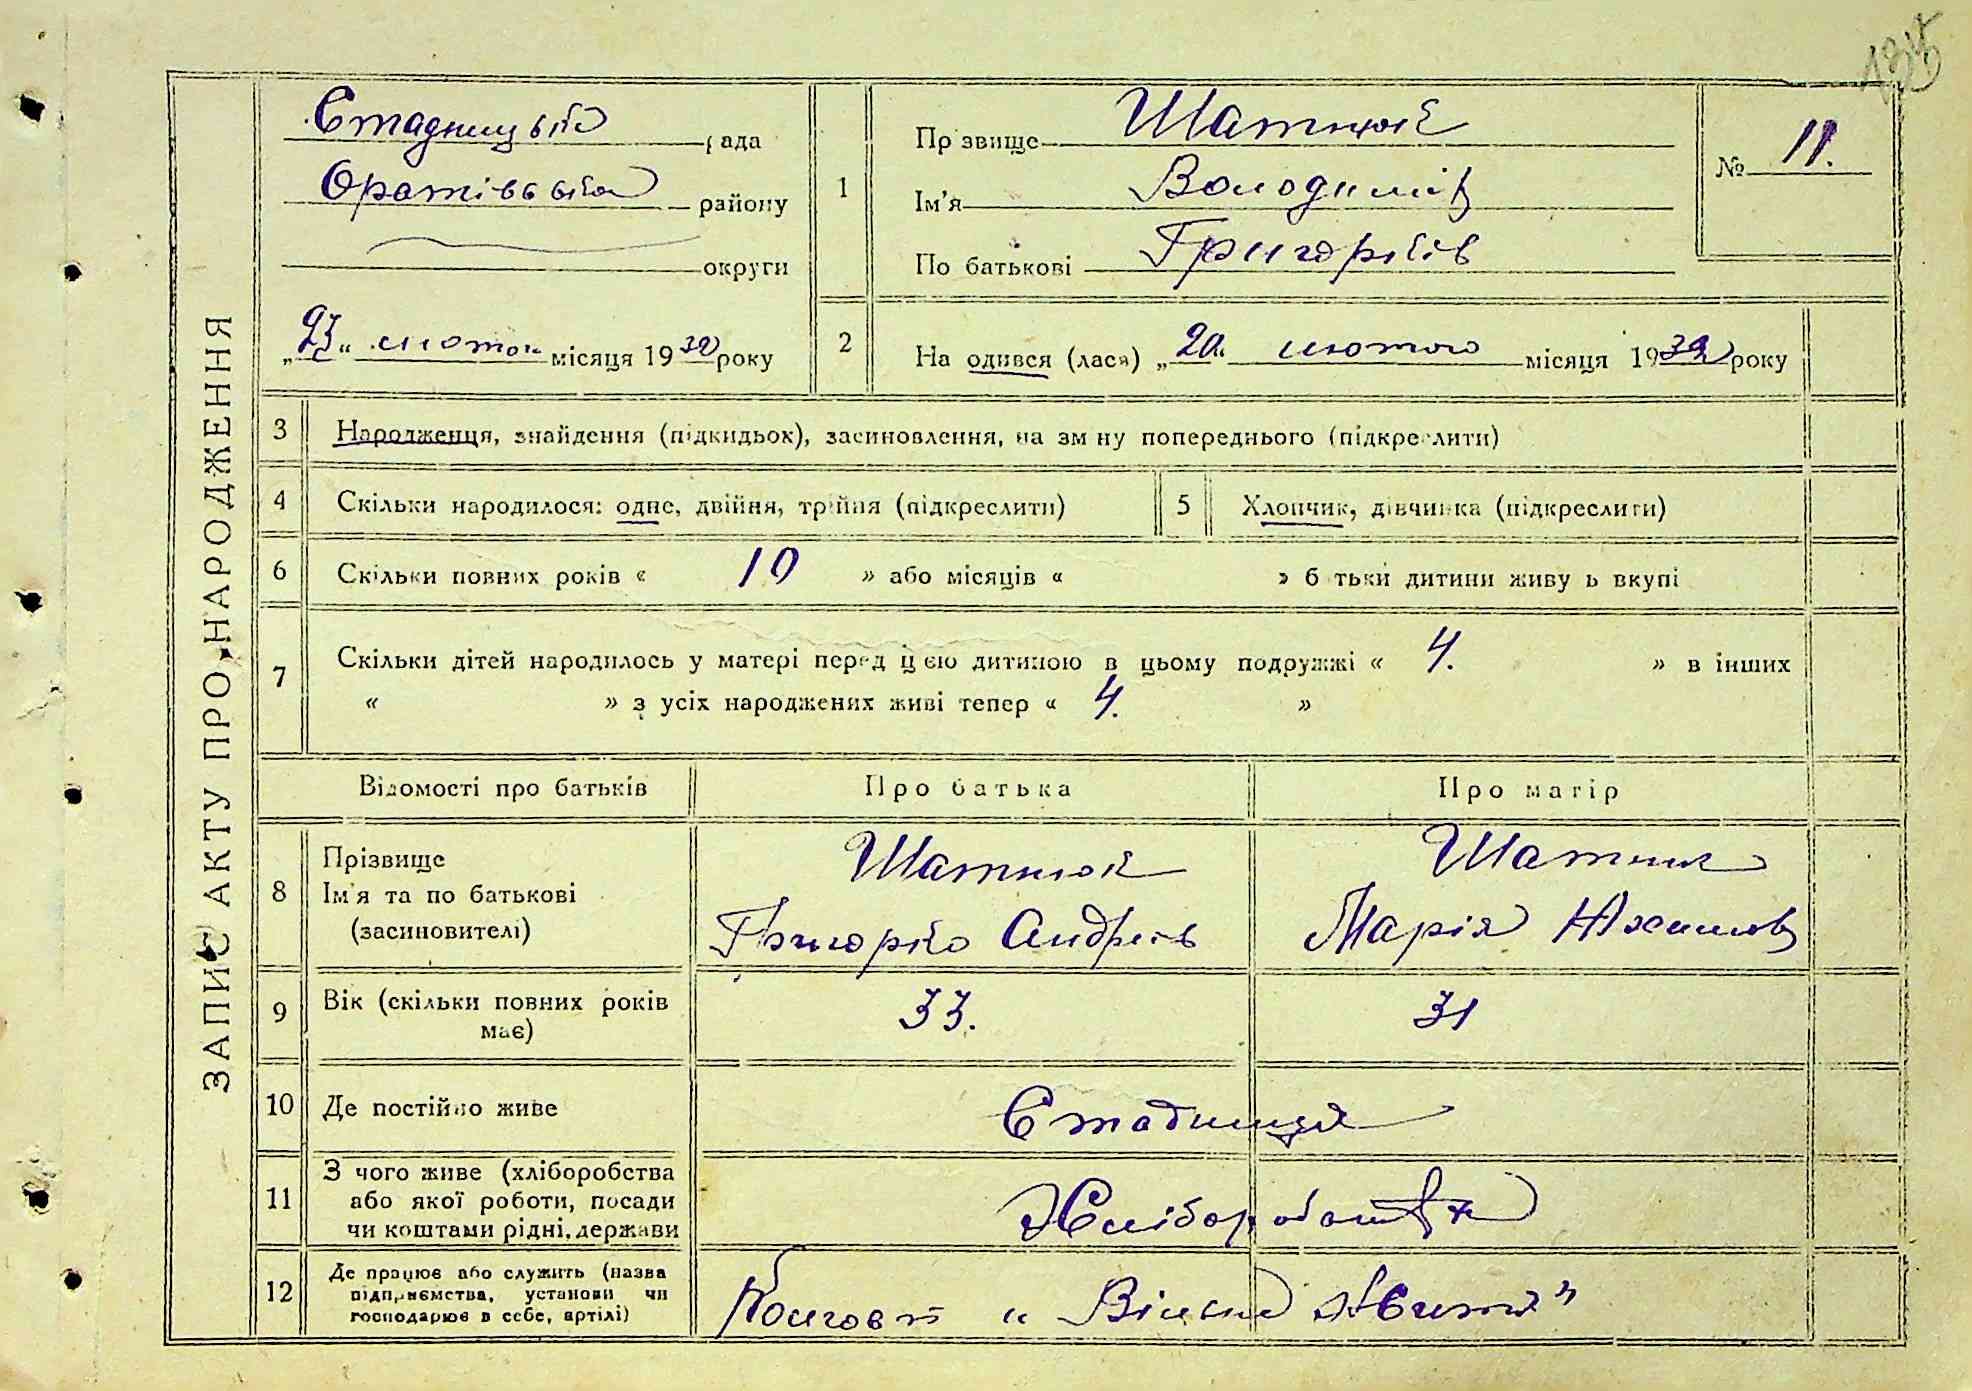 135
ЗАПИС АКТУ ПРО НАРОДЖЕННЯ
Стадницька рада
Оратівська району
округи
„23“ лютого місяця 1932 року
1
Прізвище Шатнюк
Ім'я Володимир
По батькові Григорків
№ 11.
2
Народився (лася) „20“ лютого місяця 1932 року
3 Народження, знайдення (підкидьок), засиновлення, на зміну попереднього (підкреслити)
4 Скільки народилося: одне, двійня, трійня (підкреслити)
5 Хлопчик, дівчинка (підкреслити)
6 Скільки повних років « 10 » або місяців « » батьки дитини живуть вкупі
7 Скільки дітей народилось у матері перед цією дитиною в цьому подружжі « 4. » в інших
« » з усіх народжених живі тепер « 4. »
Відомості про батьків Про батька Про матір
8 Прізвище
Ім'я та по батькові
(засиновителі)
Шатнюк
Григорко Андреєв
Шатнюк
Марія
9 Вік (скільки повних років має) 33. 31
10 Де постійно живе Стадниця
11 З чого живе (хліборобства
або якої роботи, посади
чи коштами рідні, держави
Хлібороб
12 Де працює або служить (назва
підприємства, установи чи
господарює в себе, артілі)
Колгосп „Вільне Життя"